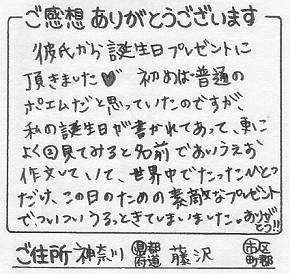 ご感想ありがとうございます
彼氏から誕生日プレゼントに
頂きました♥ 初めは普通の
ポエムだと思っていたのですが、
私の誕生日が書かれてあって、更に
よく見てみると名前であいうえお
作文していて、世界中でたった一つ
だけ、この日のための素敵なプレゼント
でついついうるっときてしまいました。ありがとう!!
ご住所 神奈川 都道府県 藤沢 市区町郡